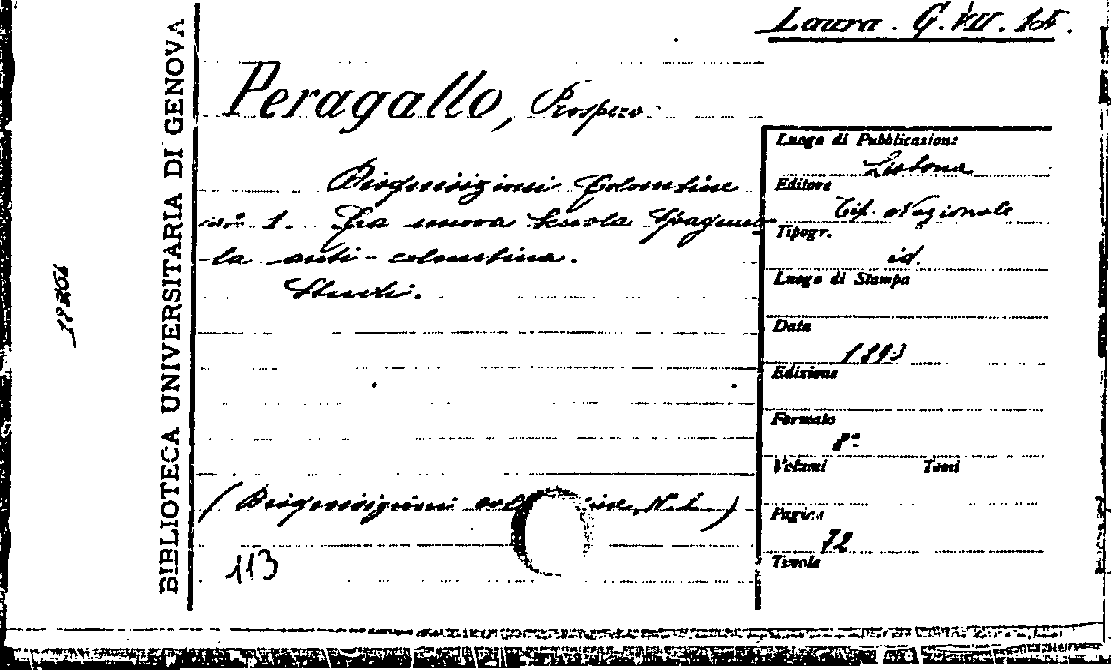 Laura. G. VII. 15.
BIBLIOTECA UNIVERSITARIA DI GENOVA
Peragallo, Prospero.
Disquisizioni Colombine
n.º 1. La nuova Scuola Spagnuo-
la anti-colombina.
Studi.
(Disquisizioni colombine, N. 1.)
113
Luogo di Pubblicazione
Lisbona
Editore
Tip. Nazionale
Tipogr.
id.
Luogo di Stampa
Data
1893
Edizione
Formato
8º
Volumi Tomi
Pagine
72
Tavole